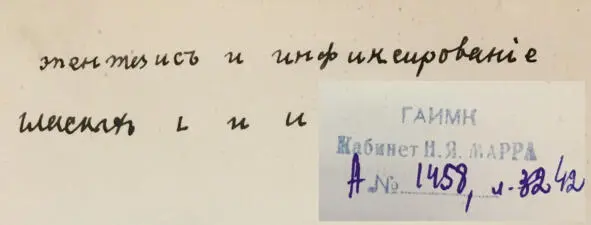 эпентезисъ и инфиксированіе
гласныхъ i и u
ГАИМК
Кабинет Н.Я. МАРРА
А № 1458, л. 42